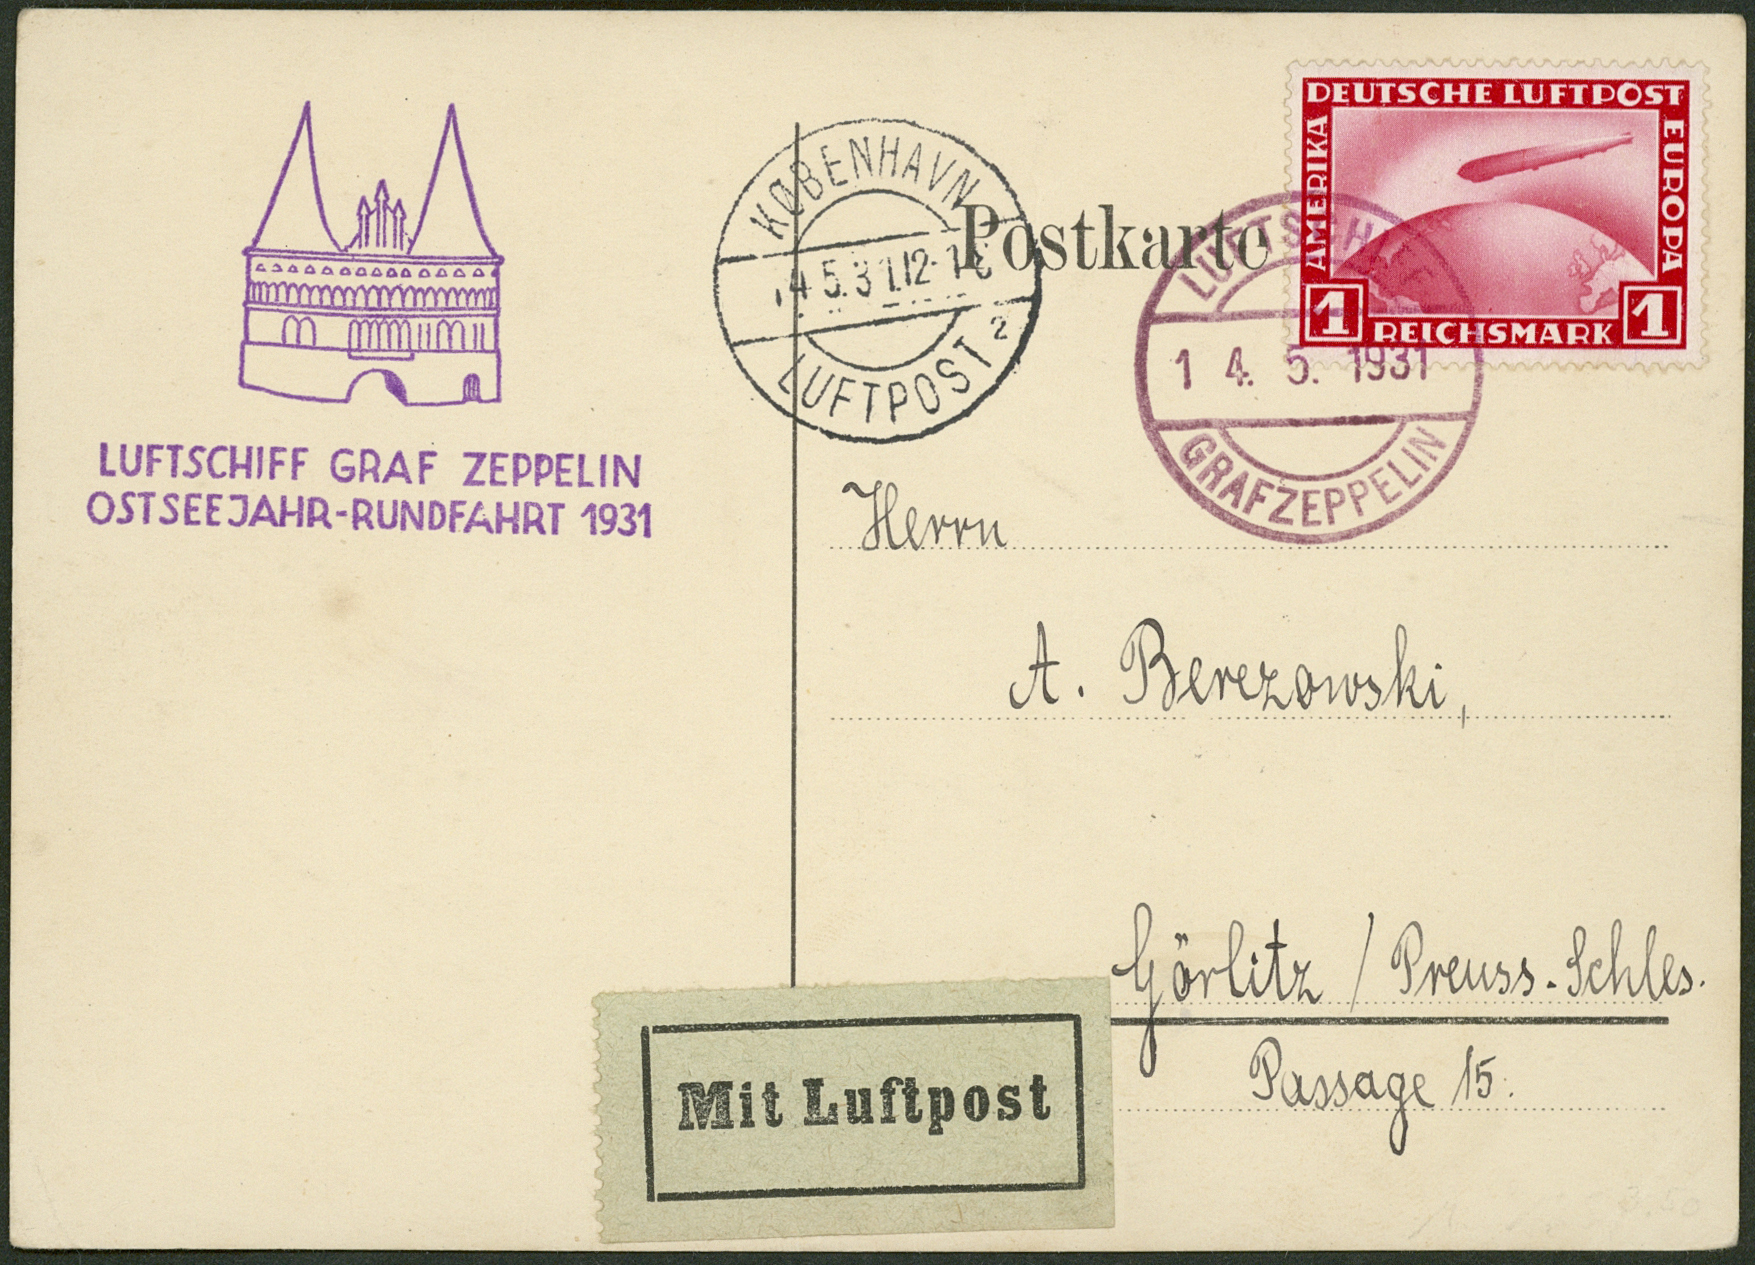 LUFTSCHIFF GRAF ZEPPELIN
OSTSEEJAHR-RUNDFAHRT 1931
KØBENHAVN
LUFTPOST 2
Postkarte
LUFTSCHIFF
14. 5. 1931
GRAF ZEPPELIN
DEUTSCHE LUFTPOST
AMERIKA
EUROPA
1 REICHSMARK 1
Herrn
A. Berezowski,
Görlitz / Preuss.-Schles.
Passage 15.
Mit Luftpost